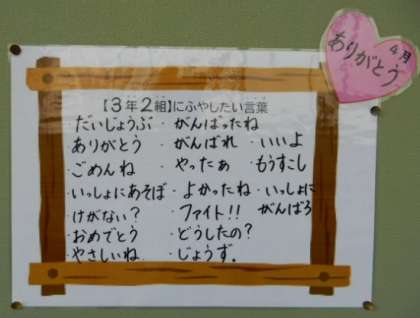 【3年2組】にふやしたい言葉
・だいじょうぶ ・がんばったね
・ありがとう ・がんばれ ・いいよ
・ごめんね ・やったぁ ・もうすこし
・いっしょにあそぼ ・よかったね ・いっしょに
がんばろ
・けがない? ・ファイト!!
・おめでとう ・どうしたの?
・やさしいね ・じょうず.
4月
ありがとう